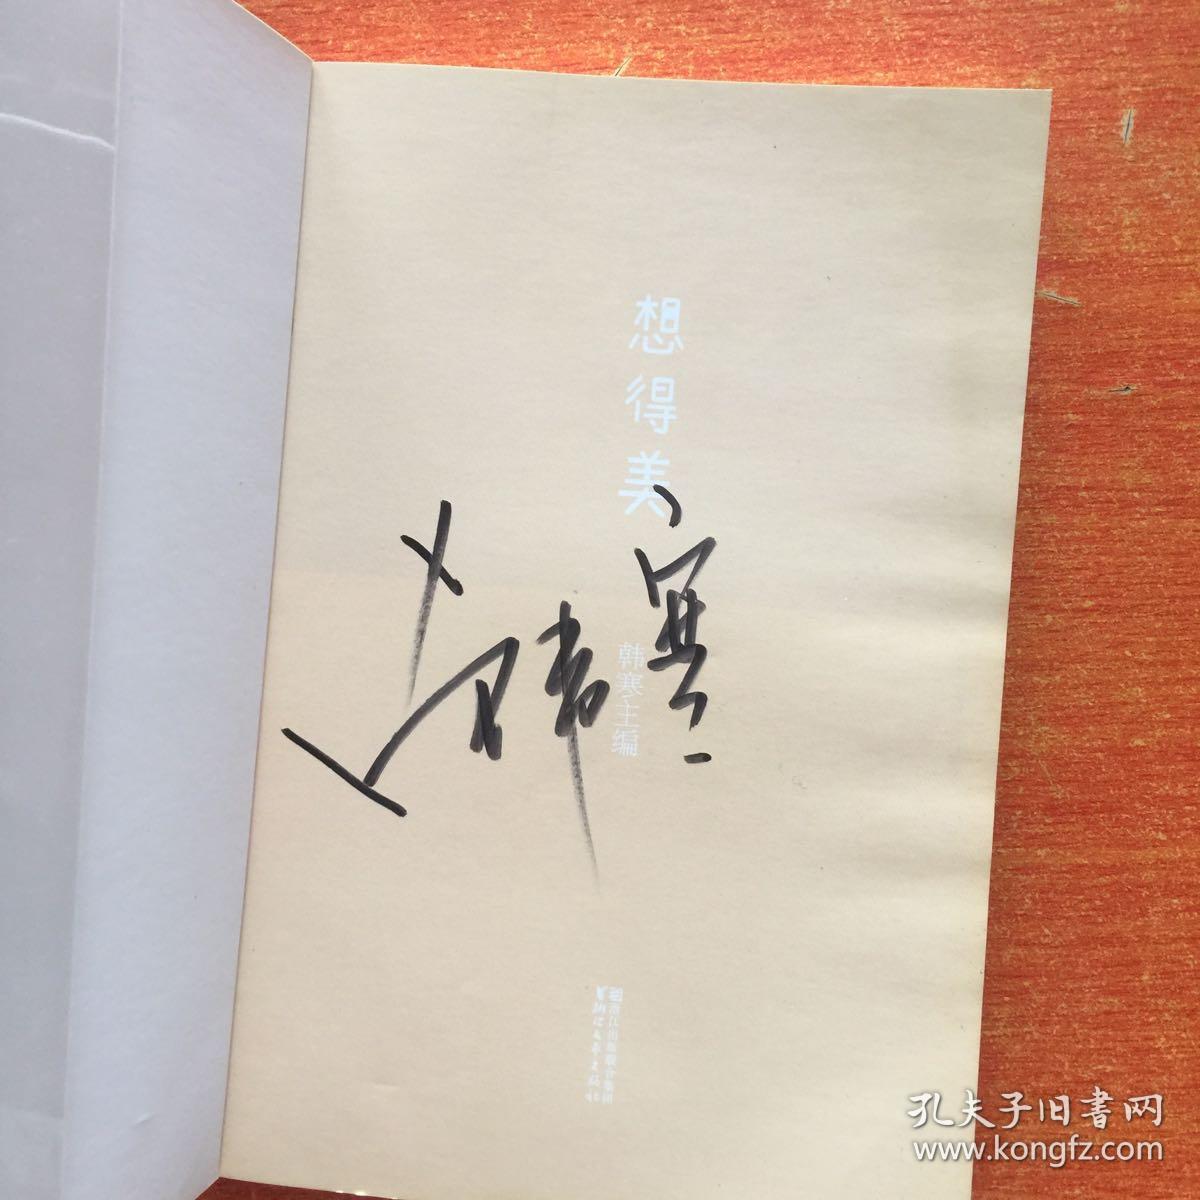 想得美
韩寒
韩寒主编
浙江出版联合集团
浙江文艺出版社
孔夫子旧书网
www.kongfz.com